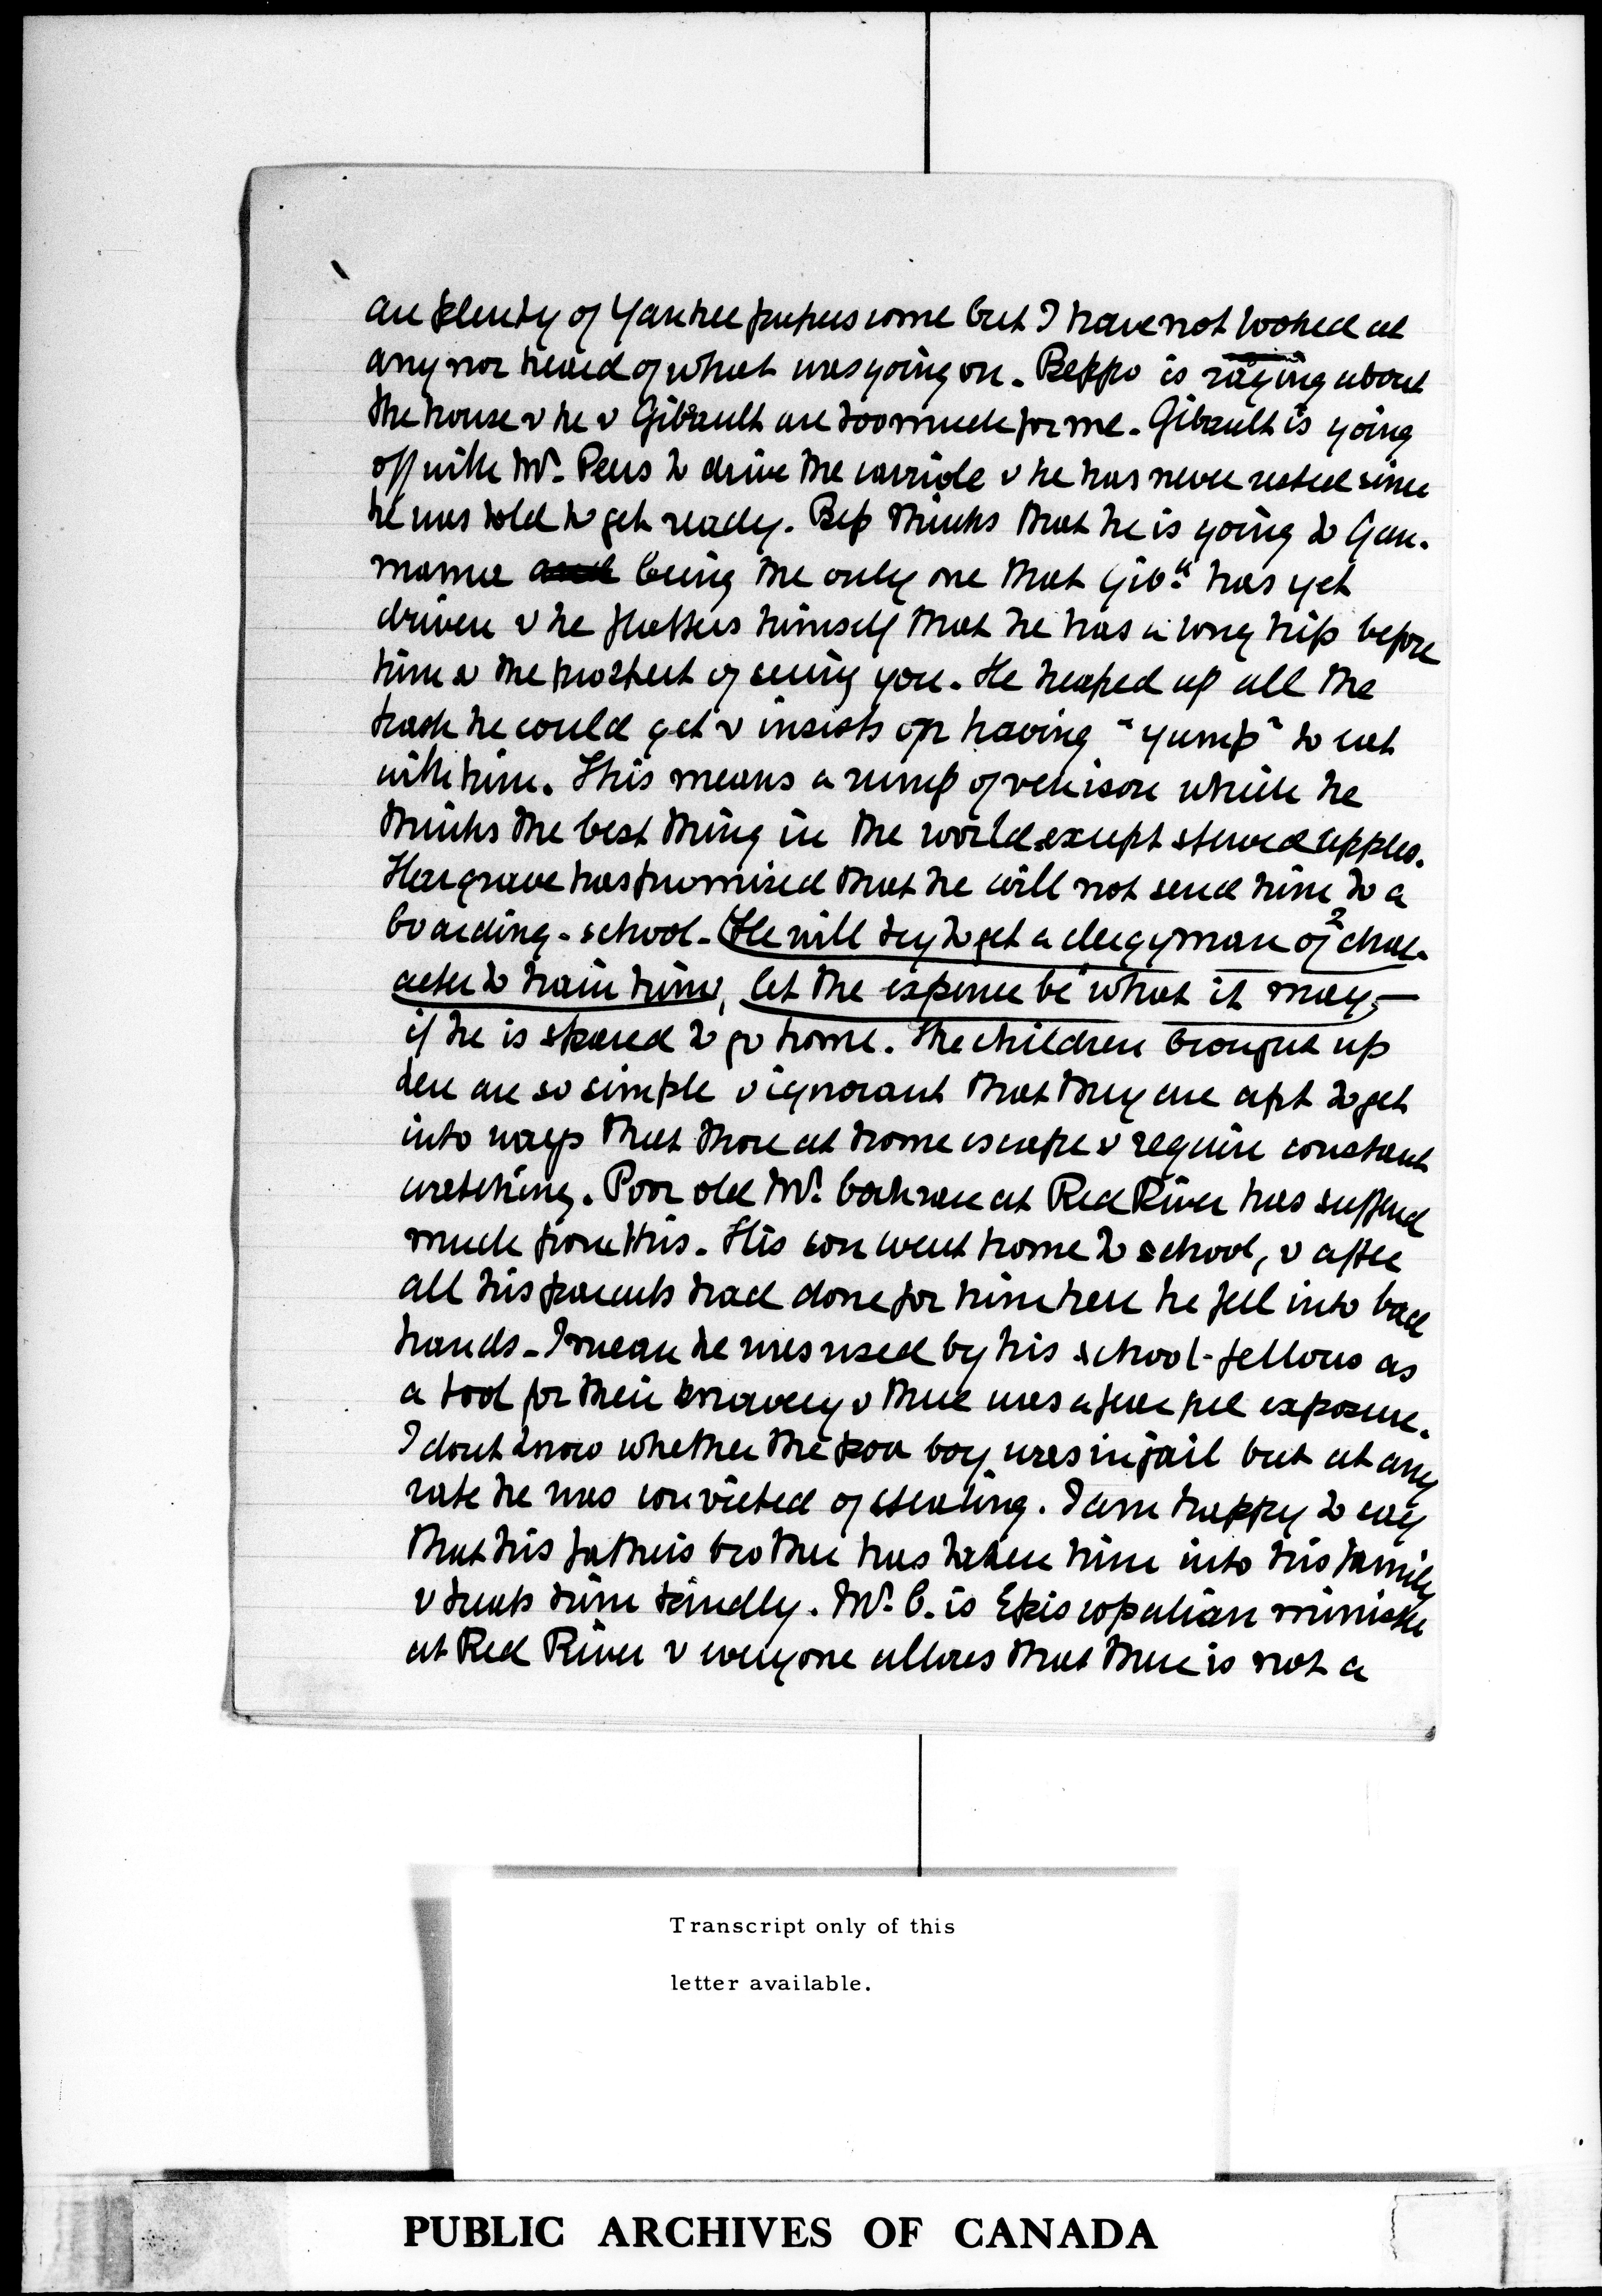 are plenty of Yankee papers come but I have not looked at
any nor heard of what was going on. Beppo is raging about
the house & he & Gibault are too much for me. Gibault is going
off with Mr. Peers to drive the carriole & he has never rested since
he was told to get ready. Bep thinks that he is going to Gan-
mama and being the only one that Gib.lt has yet
driven & he flatters himself that he has a long trip before
him & the prospect of seeing you. He heaped up all the
trash he could get & insists on having "yump" to eat
with him. This means a rump of venison which he
thinks the best thing in the world except stewed apples.
Hargrave has promised that he will not send him to a
boarding-school. He will try to get a clergyman of char-
acter to train him, let the expence be what it may,—
if he is spared to go home. The children brought up
here are so simple & ignorant that they are apt to get
into ways that those at home escape & require constant
watching. Poor old Mr. Cochrane at Red River has suffered
much from this. His son went home to school, & after
all his parents had done for him here he fell into bad
hands. I mean he was used by his school-fellows as
a tool for their knavery & there was a fearful exposure.
I dont know whether the poor boy was in jail but at any
rate he was convicted of stealing. I am happy to say
that his father's brother has taken him into his family
& treats him kindly. Mr. C. is Episcopalian minister
at Red River & everyone allows that there is not a
Transcript only of this
letter available.
PUBLIC ARCHIVES OF CANADA